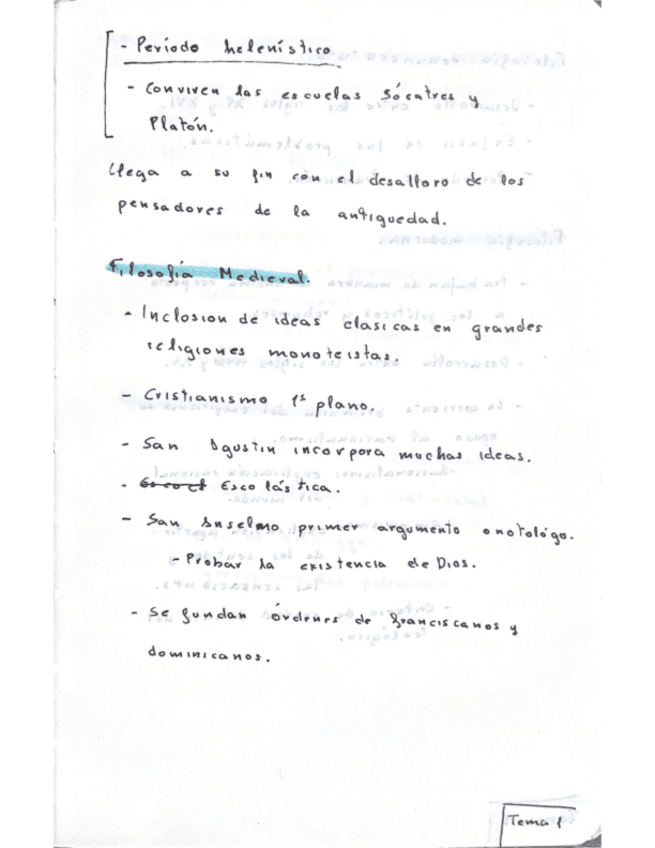 - Periodo helenístico
- Conviven las escuelas Sócatres y
Platón.
Llega a su fin con el desalloro de los
pensadores de la antiguedad.
Filosofía Medieval.
- Inclosion de ideas clasicas en grandes
religiones monoteistas.
- Cristianismo 1ª plano.
- San Agustin incorpora muchas ideas.
- Escolástica.
- San Anselmo primer argumento onotológo.
- Probar la existencia de Dios.
- Se fundan órdenes de franciscanos y
dominicanos.
Tema 1